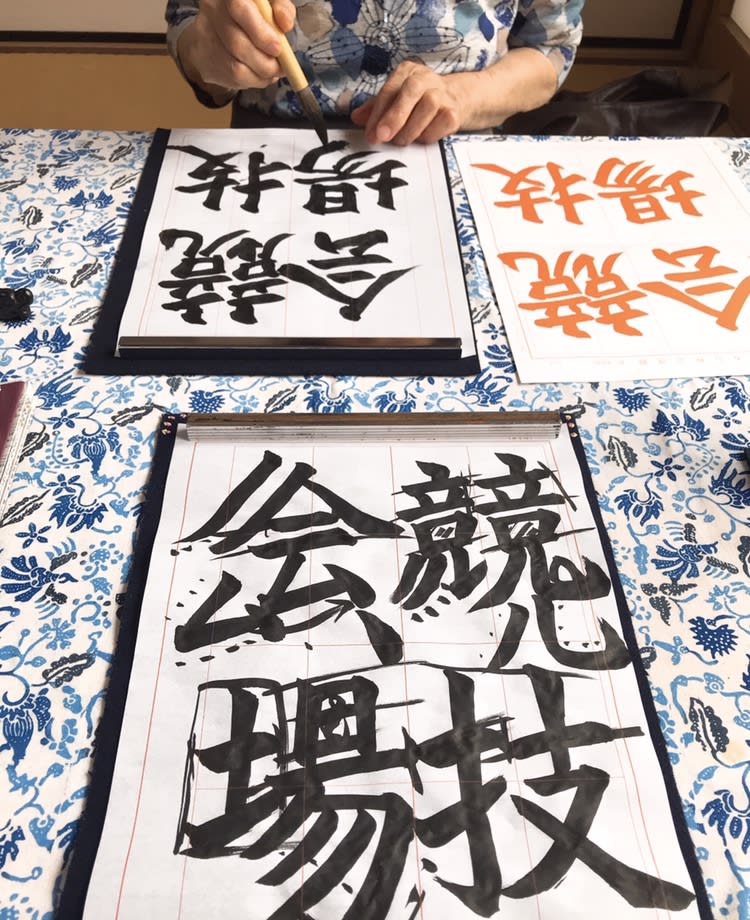 競技
会場
競技
会場
競技
会場